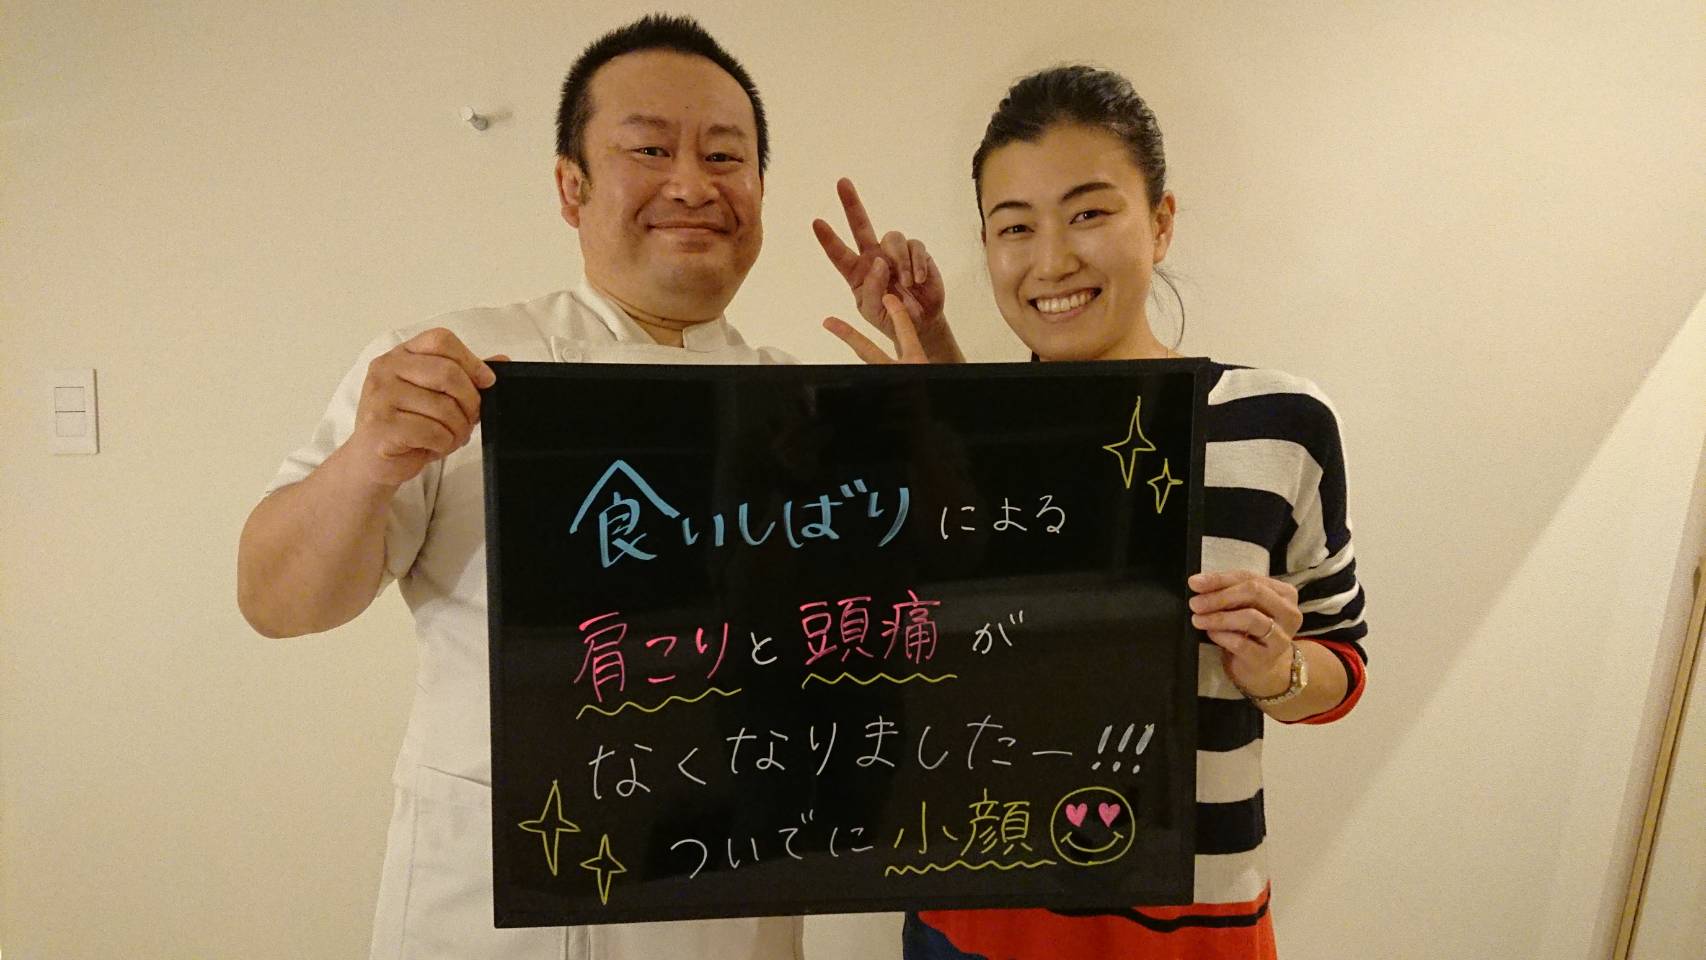 食いしばりによる
肩こりと頭痛が
なくなりましたー!!!
ついでに小顔